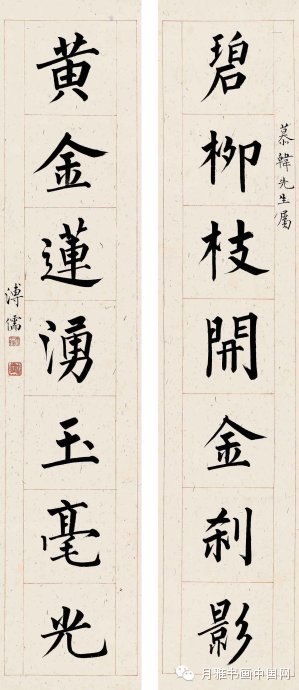 慕韓先生屬
碧柳枝開金刹影
黃金蓮湧玉毫光
溥儒
月雅书画中国网